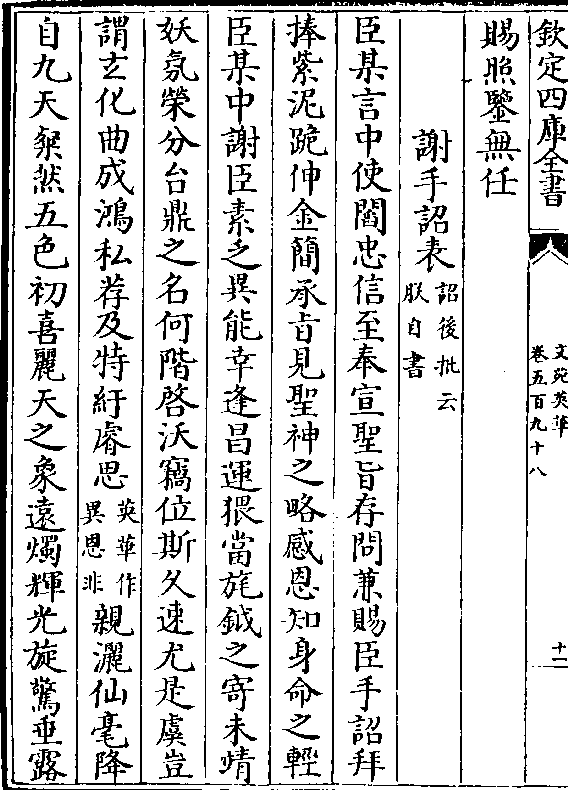 欽定四庫全書
文苑英華
卷五百九十八
十二
賜照鑒無任
謝手詔表
詔後批云
朕自書
臣某言中使閻忠信至奉宣聖旨存問兼賜臣手詔拜
捧紫泥跪伸金簡承旨見聖神之略感恩知身命之輕
臣某中謝臣素乏異能幸逢昌運猥當旄鉞之寄未靖
妖氛榮分台鼎之名何階啓沃竊位斯久速尤是虞豈
謂玄化曲成鴻私荐及特紆睿思
英華作
異恩非
親灑仙毫降
自九天粲然五色初喜麗天之象遠燭輝光旋驚垂露